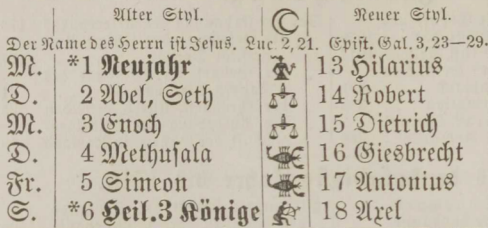 Alter Styl. ☾ Neuer Styl.
Der Name des Herrn ist Jesus. Luc. 2, 21. Epist. Gal. 3, 23—29.
M. *1 Neujahr 13 Hilarius
D. 2 Abel, Seth 14 Robert
M. 3 Enoch 15 Dietrich
D. 4 Methusala 16 Giesbrecht
Fr. 5 Simeon 17 Antonius
S. *6 Heil. 3 Könige 18 Axel